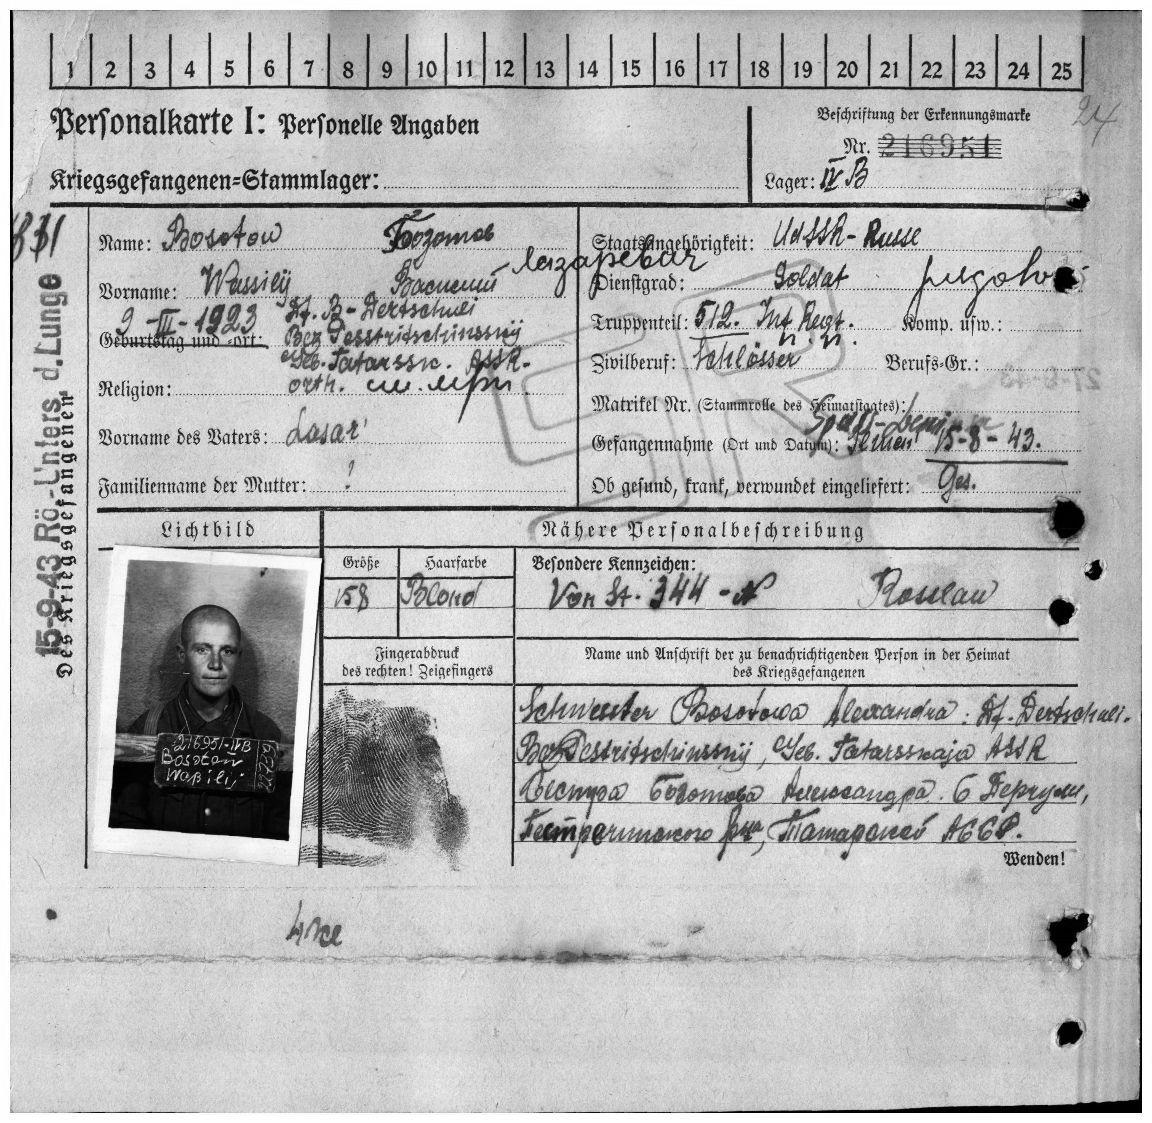 1 2 3 4 5 6 7 8 9 10 11 12 13 14 15 16 17 18 19 20 21 22 23 24 25
Personalkarte I: Personelle Angaben
Kriegsgefangenen=Stammlager:
Beschriftung der Erkennungsmarke
24
Nr. 216951
Lager: IV B
Name: Bosotow Бозотов
Vorname: Wassilij Василий Лазаревич
9-III-1923 Df. B-Dertschuli
Geburtstag und -ort: Bez Pesstritschinsskij
Geb. Tatarssk. ASSR.
Religion: orth.
Vorname des Vaters: Lasar
Familienname der Mutter: ?
Staatsangehörigkeit: UdSSR-Russe
Dienstgrad: Soldat рядовой
Truppenteil: 512. Inf Regt. Komp. usw.:
Zivilberuf: Schlösser Berufs-Gr.:
27-8-43
Matrikel Nr. (Stammrolle des Heimatstaates):
Gefangennahme (Ort und Datum): 15-8-43.
Ob gesund, krank, verwundet eingeliefert: Ges.
SR
15-9-43 Rö.-Unters. d. Lunge
Des Kriegsgefangenen
Lichtbild
Nähere Personalbeschreibung
Größe Haarfarbe Besondere Kennzeichen:
158 Blond Von St. 344-N Rosslau
Fingerabdruck
des rechten! Zeigefingers
Name und Anschrift der zu benachrichtigenden Person in der Heimat
des Kriegsgefangenen
Schwester Bosotowa Alexandra: Df. Dertschuli.
Bez Pestritschinsskij, Geb. Tatarsskaja ASSR
Сестра Бозотова Александра. Б Дерчули,
Пестричинского р-на, Татарской АССР.
Wenden!
216951-IVB
Bosotow
Waßilij